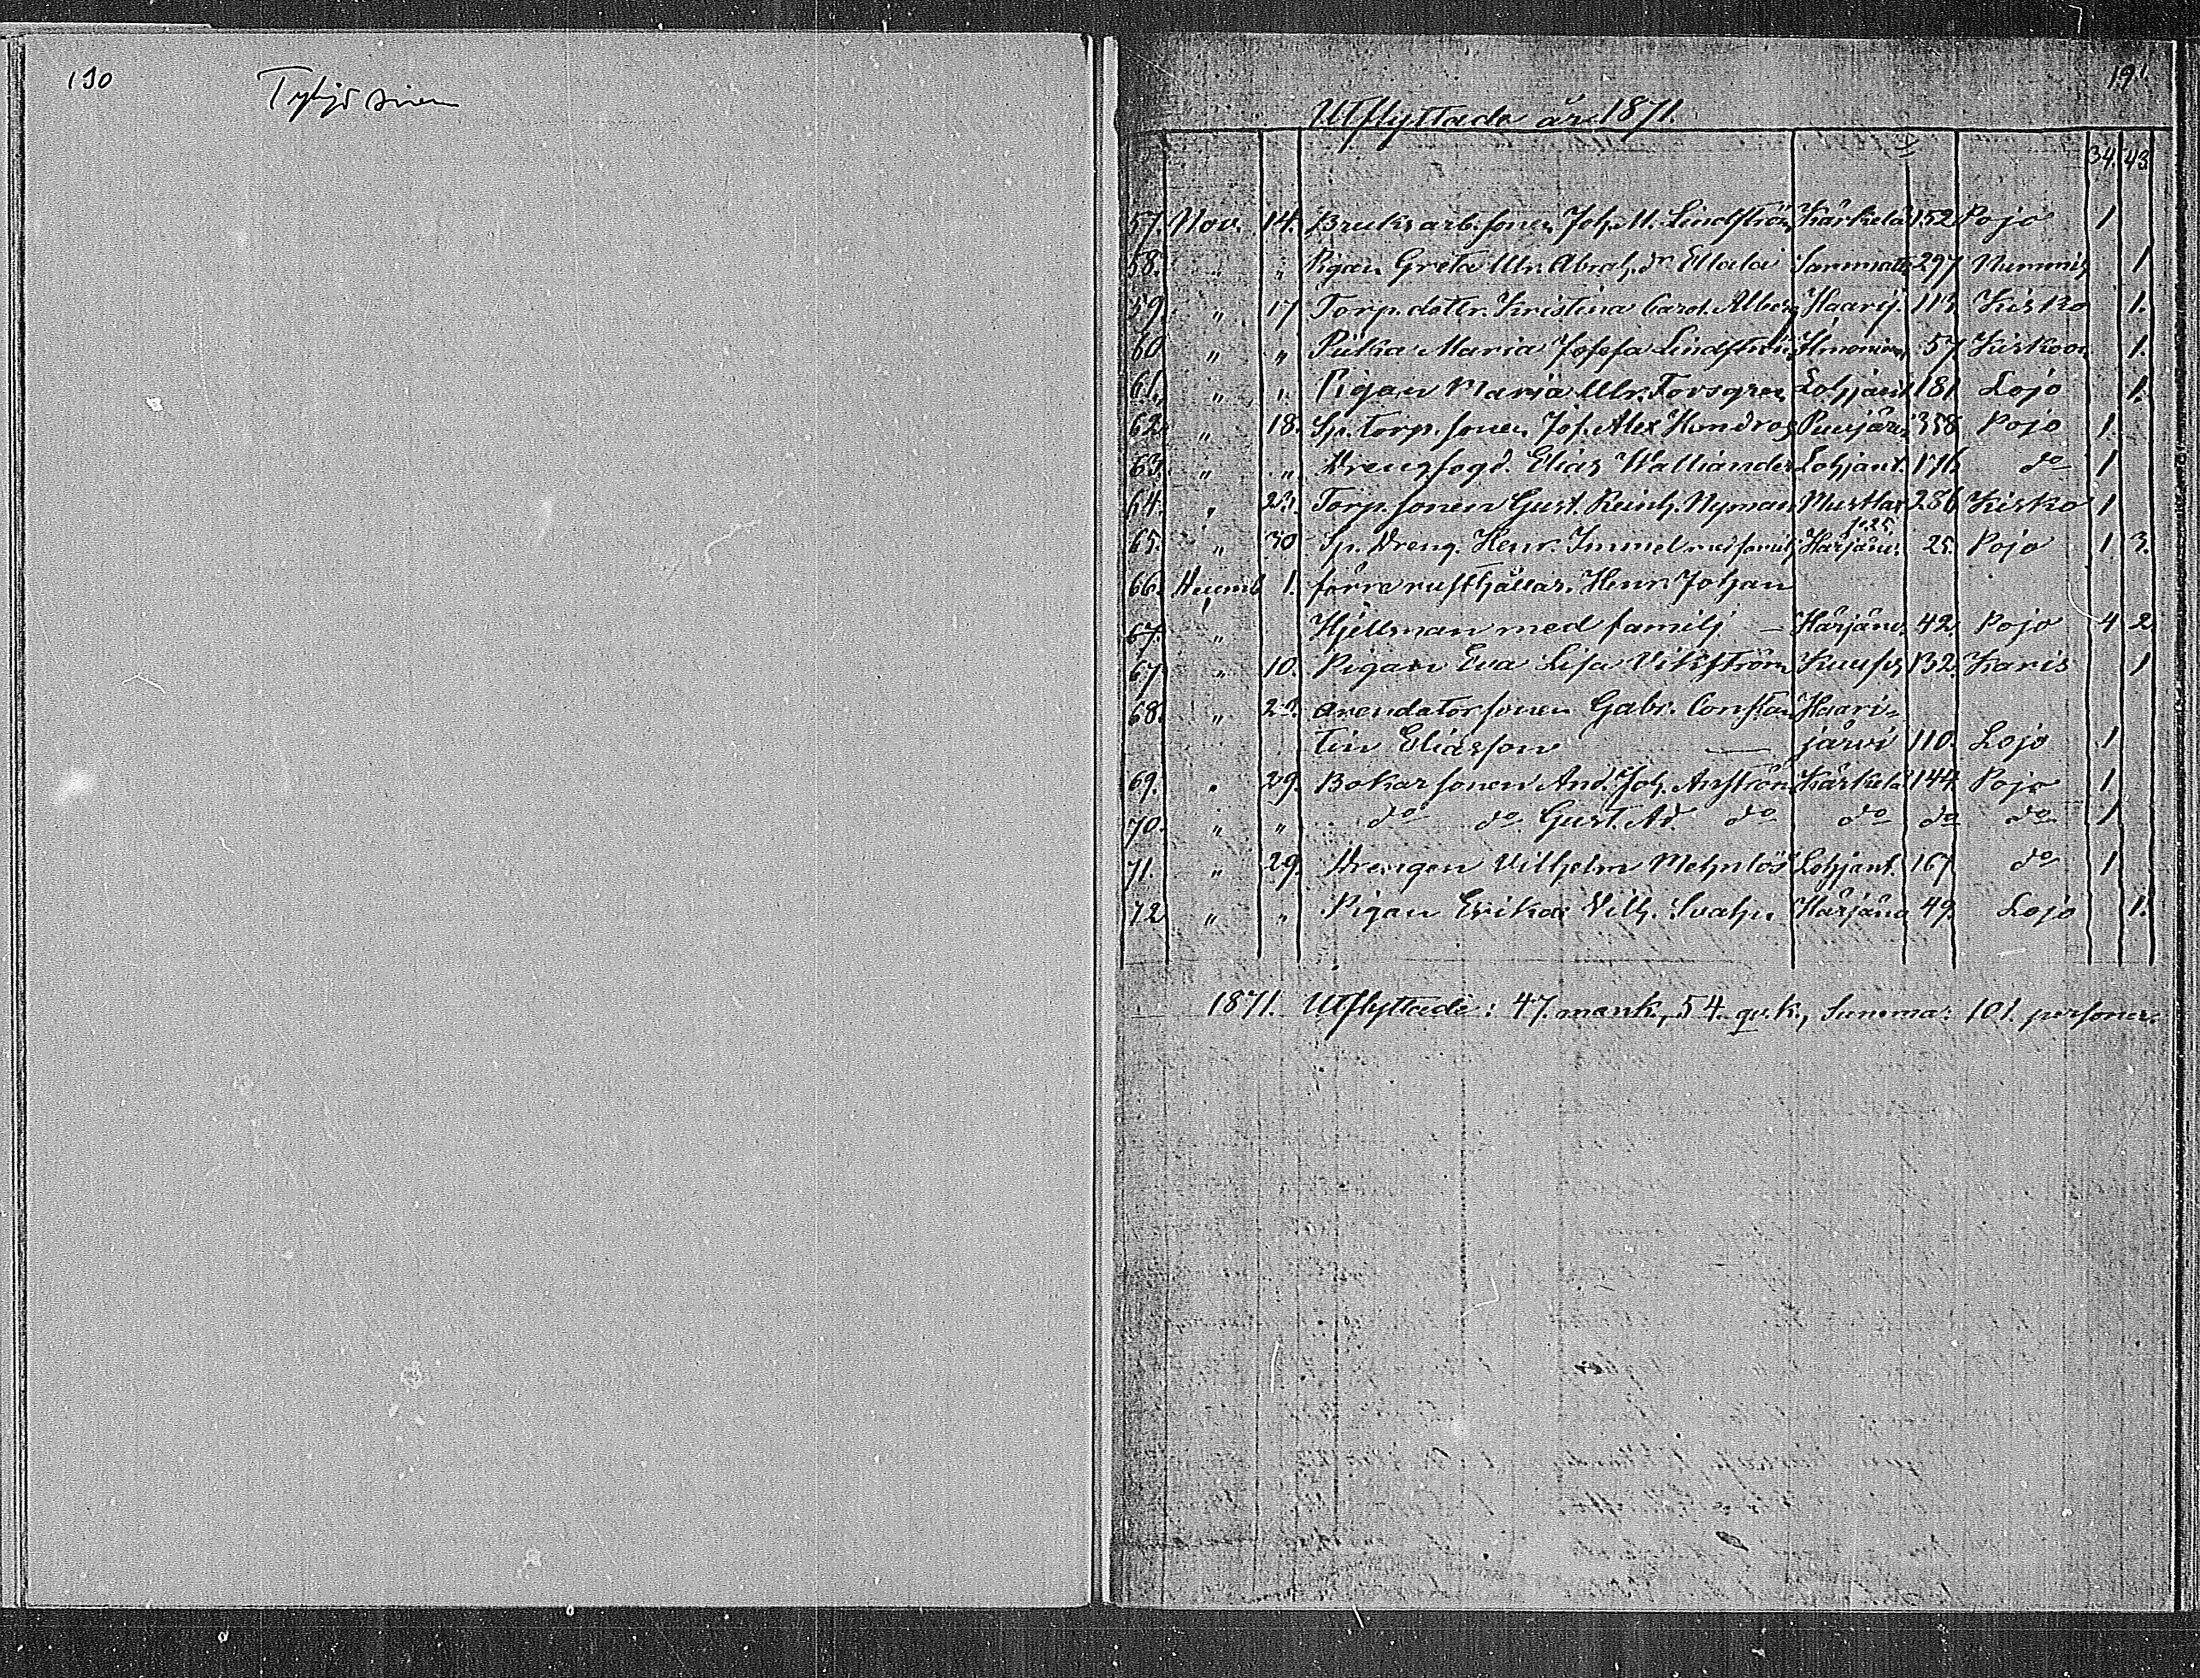 190
Tyhjö sivu
191.
Utflyttade år 1871.
34. 43.
57. Nov. 14. Bruksarb.sonen Joh. M. Lindström Kärkelä 152 Pojo 1
58. " " Pigan Greta Ulr. Abrah.dr Ellala Sammatti 297 Nummis 1
59. " 17 Torp.dottr. Kristina Carol. Alberg Haarij. 113 Kisko 1.
60 " " Piika Maria Josefa Lindström 57 Kiskoon 1.
61. " " Pigan Maria Ulr. Forsgren Lohjant. 181 Lojo 1.
62. " 18. Sp. torp.sonen Jos. Alex Pusjärv. 358 Pojo 1.
63. " " Drengfogd. Elias Walliander Lohjant. 176 do 1
64. " 23. Torp.sonen Gust. Reinh. Nyman Mustla 286 Kisko 1
65. " 30 Sp. Dreng. Henr. Immel med familj Härjänv. 25. Pojo 1 3.
66. Decemb 1. förra rusthållar. Henr. Johan
67. " Hjellman med familj — Härjänv. 42. Pojo 4 2
67. " 10. Pigan Eva Lisa Vikström Kuuss 132. Karis 1
68. " 23. Arendatorsonen Gabr. Constan Haari-
tin Eliasson — järvi 110. Lojo 1
69. " 29. Bokarsonen And. Joh. Kärkelä 144 Pojo 1
70. " " do do Gust. Ad. do do do do 1
71. " 29. Drengen Vilhelm Mehnlös Lohjant. 167 do 1
72 " " Pigan Erika Vilh. Svahn Härjänv 49. Lojo 1.
1871. Utflyttade: 47. mank., 54. qv.k., Summa: 101. personer.